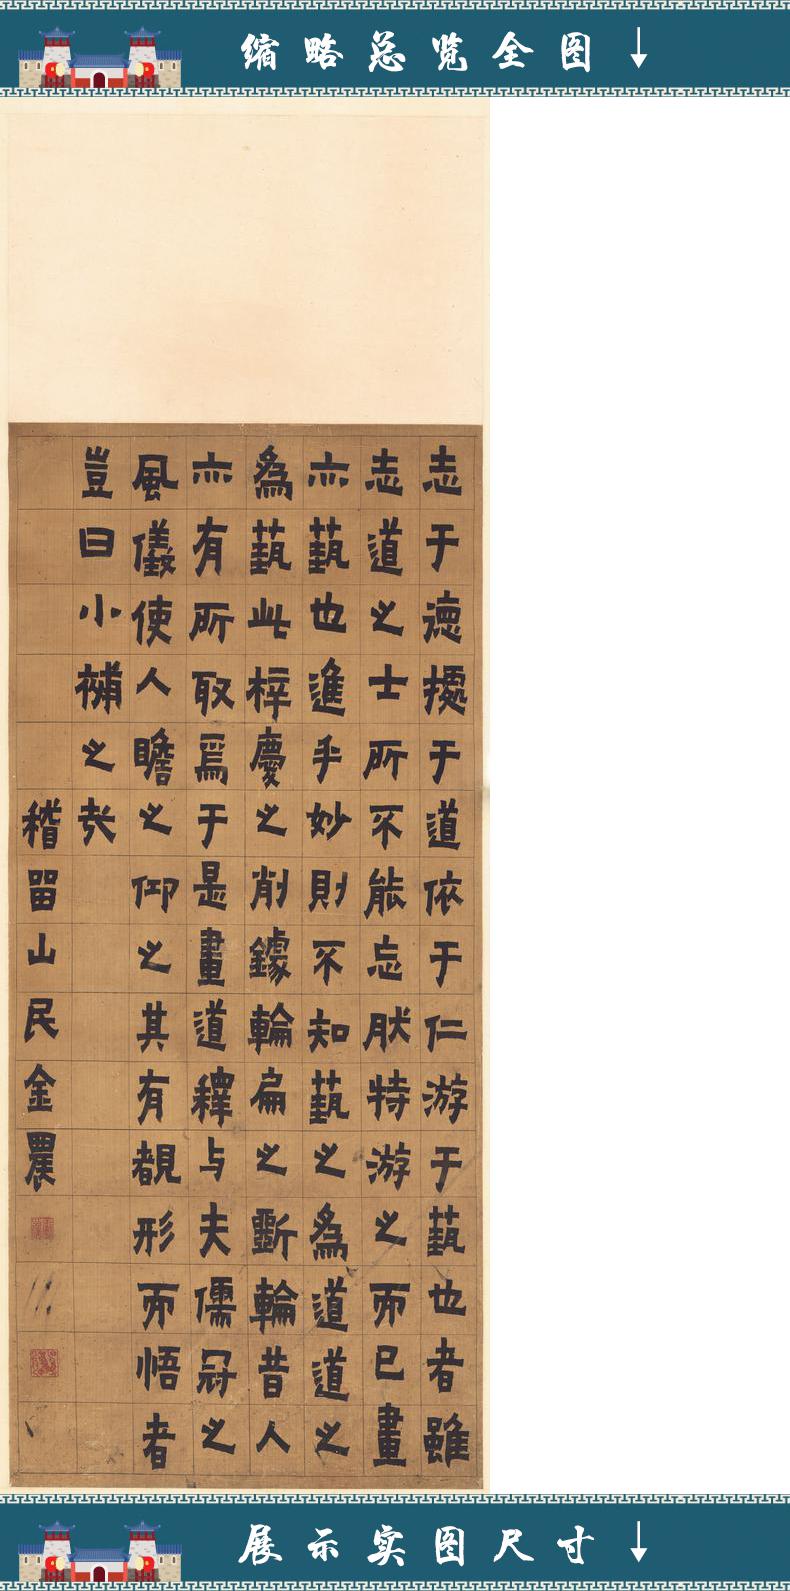 缩略总览全图
志于德據于道依于仁游于藝也者雖
志道之士所不能忘肰特游之而已畫
亦藝也進乎妙則不知藝之爲道道之
爲藝此梓慶之削鐻輪扁之斲輪昔人
亦有所取焉于是畫道釋与夫儒冠之
風儀使人瞻之仰之其有覩形而悟者
豈曰小補之哉
稽留山民金農
展示实图尺寸